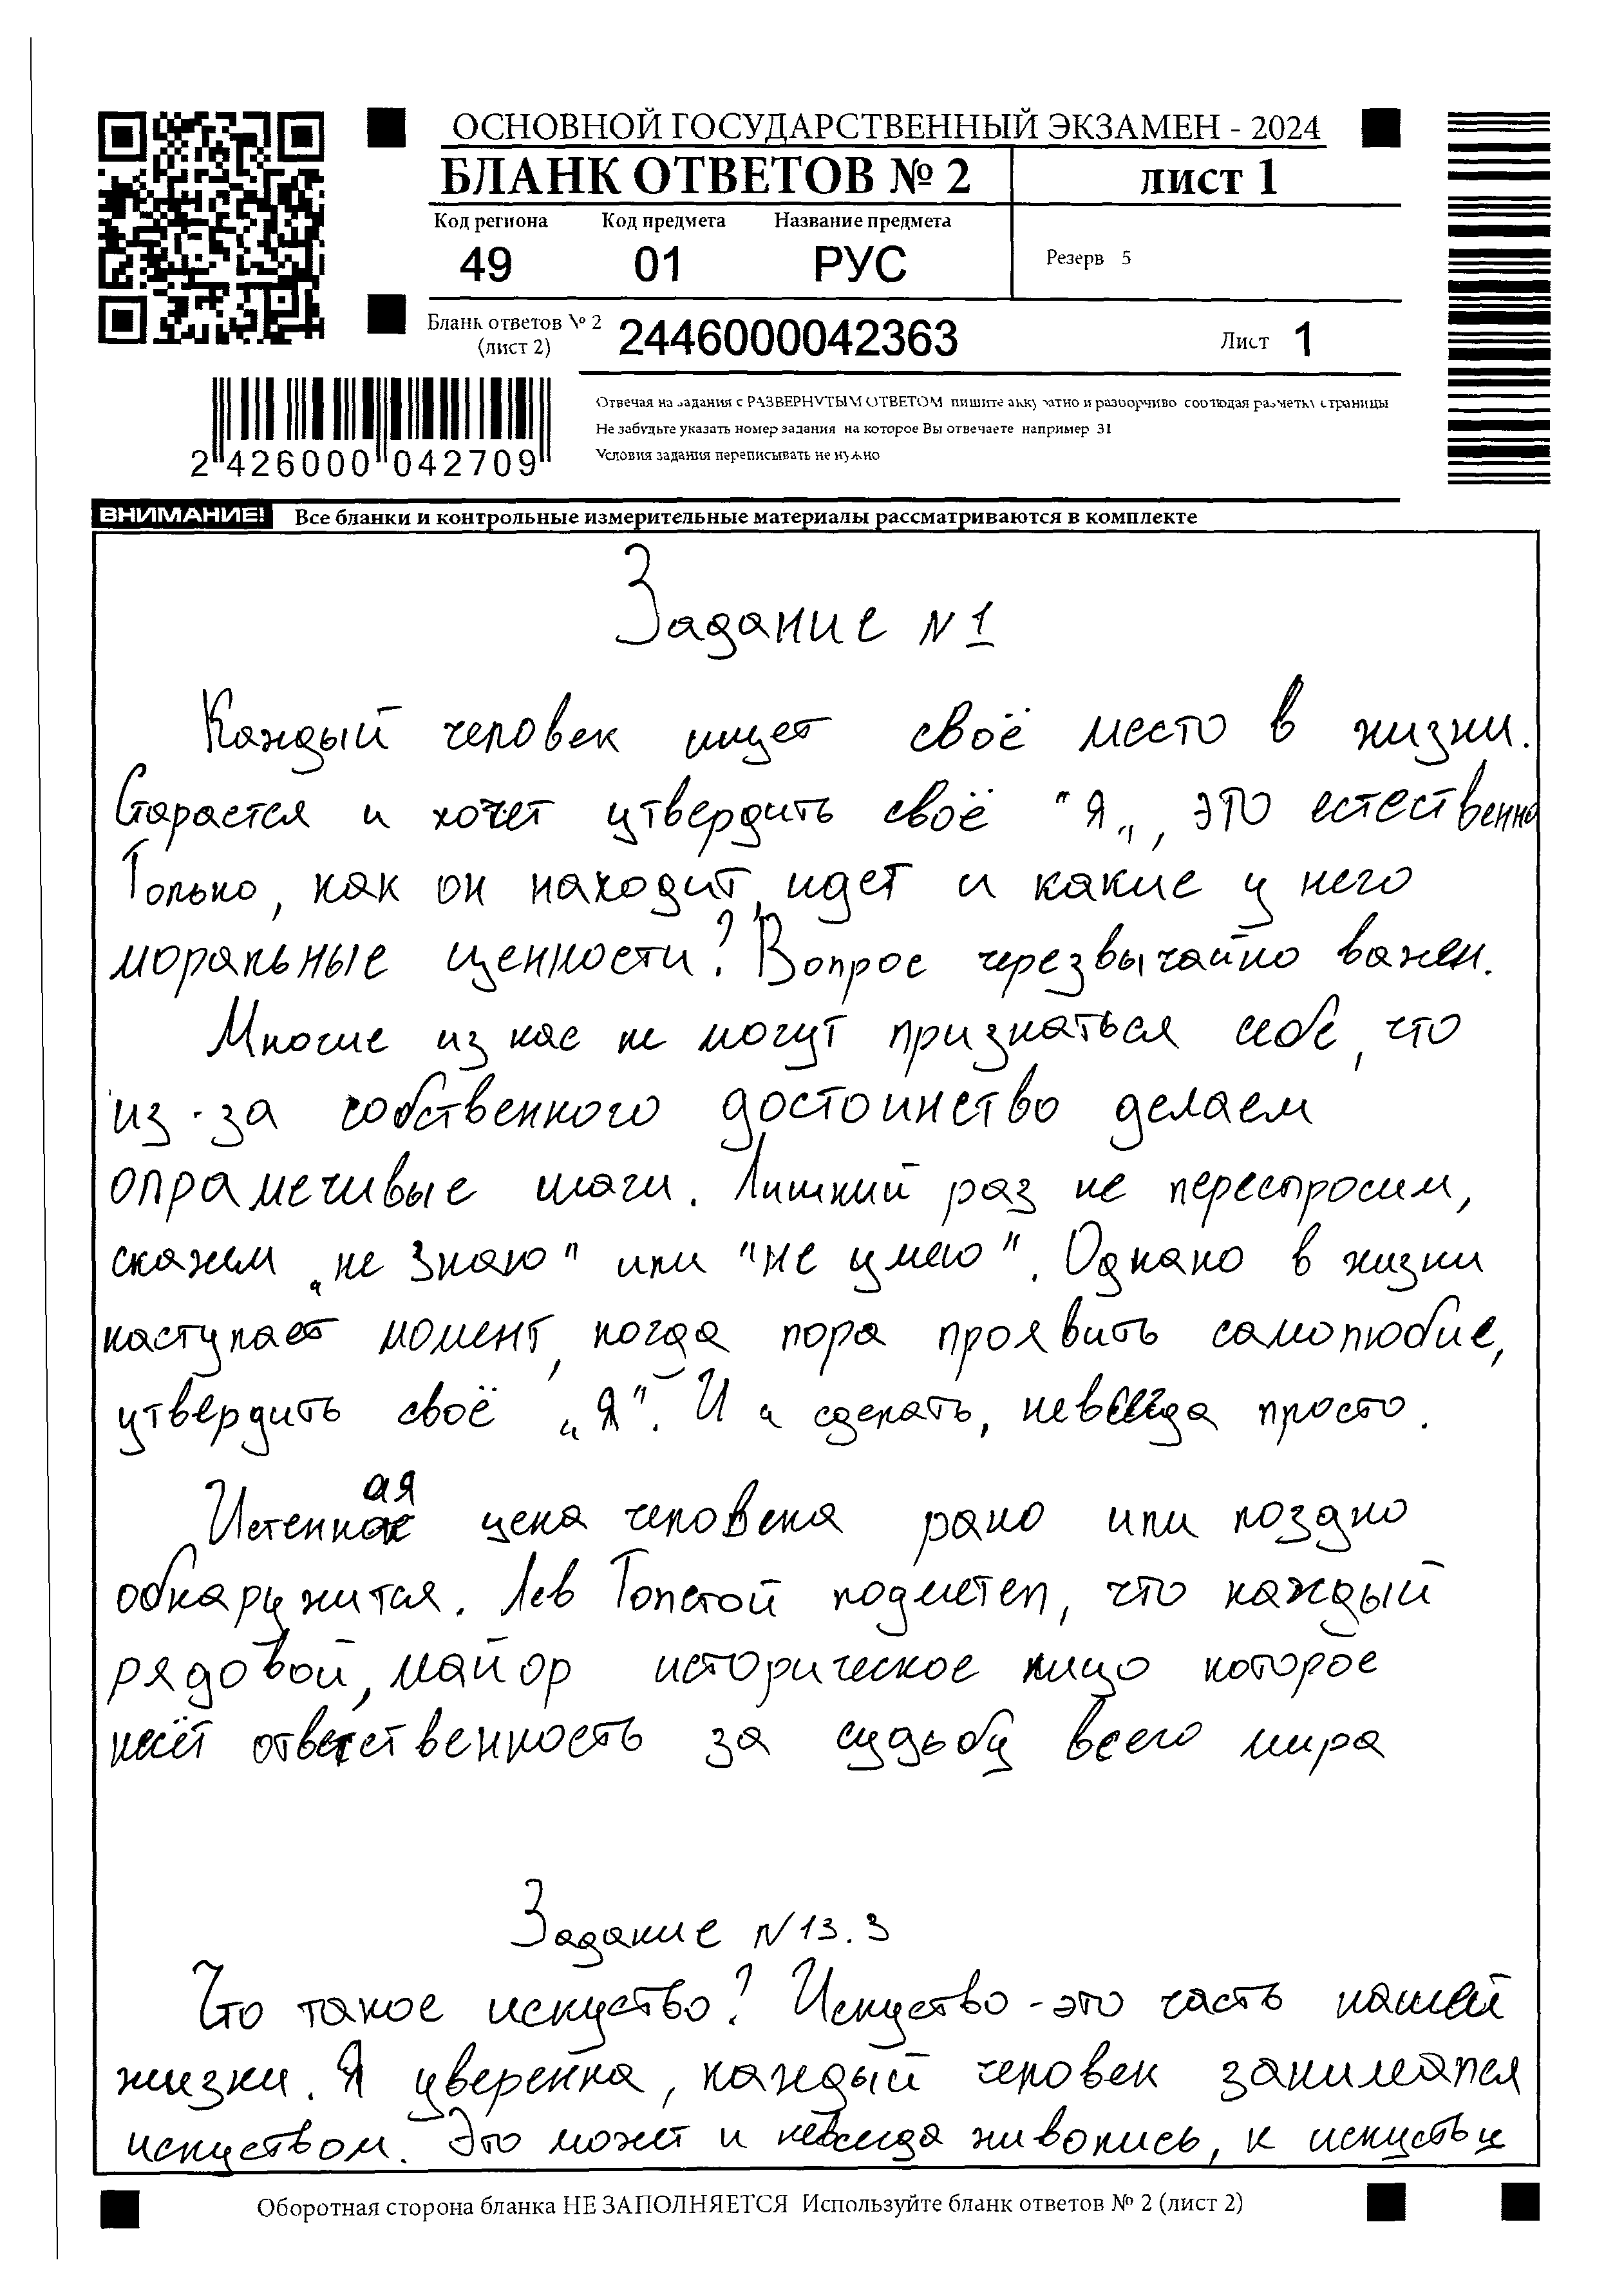 ОСНОВНОЙ ГОСУДАРСТВЕННЫЙ ЭКЗАМЕН - 2024
БЛАНК ОТВЕТОВ № 2
лист 1
Код региона Код предмета Название предмета
49 01 РУС
Резерв 5
Бланк ответов № 2
(лист 2)
2446000042363
Лист 1
2 426000 042709
Отвечая на задания с РАЗВЕРНУТЫМ ОТВЕТОМ пишите аккуратно и разборчиво соблюдая разметку страницы
Не забудьте указать номер задания на которое Вы отвечаете например 31
Условия задания переписывать не нужно
ВНИМАНИЕ! Все бланки и контрольные измерительные материалы рассматриваются в комплекте
Задание N 1
Каждый человек ищет своё место в жизни.
Старается и хочет утвердить своё "Я„, это естественно
Только, как он находит, идет и какие у него
моральные ценности? Вопрос черезвычайно важен.
Многие из нас не могут признаться себе, что
из-за собственного достоинство делаем
опрамечивые шаги. Лишний раз не переспросим,
скажем „не знаю" или "не умею". Однако в жизни
наступает момент, когда пора проявить самолюбие,
утвердить своё „Я". И и сделать, невсегда просто.
Истенная цена человека рано или поздно
обнаружится. Лев Толстой подметел, что каждый
рядовой, майор историческое лицо которое
несёт ответственность за судьбу всего мира
Задание N 13.3
Что такое искуство? Искуство - это часть нашей
жизни. Я уверенна, каждый человек занимался
искуством. Это может и невсегда живопись, к искуству
Оборотная сторона бланка НЕ ЗАПОЛНЯЕТСЯ Используйте бланк ответов № 2 (лист 2)